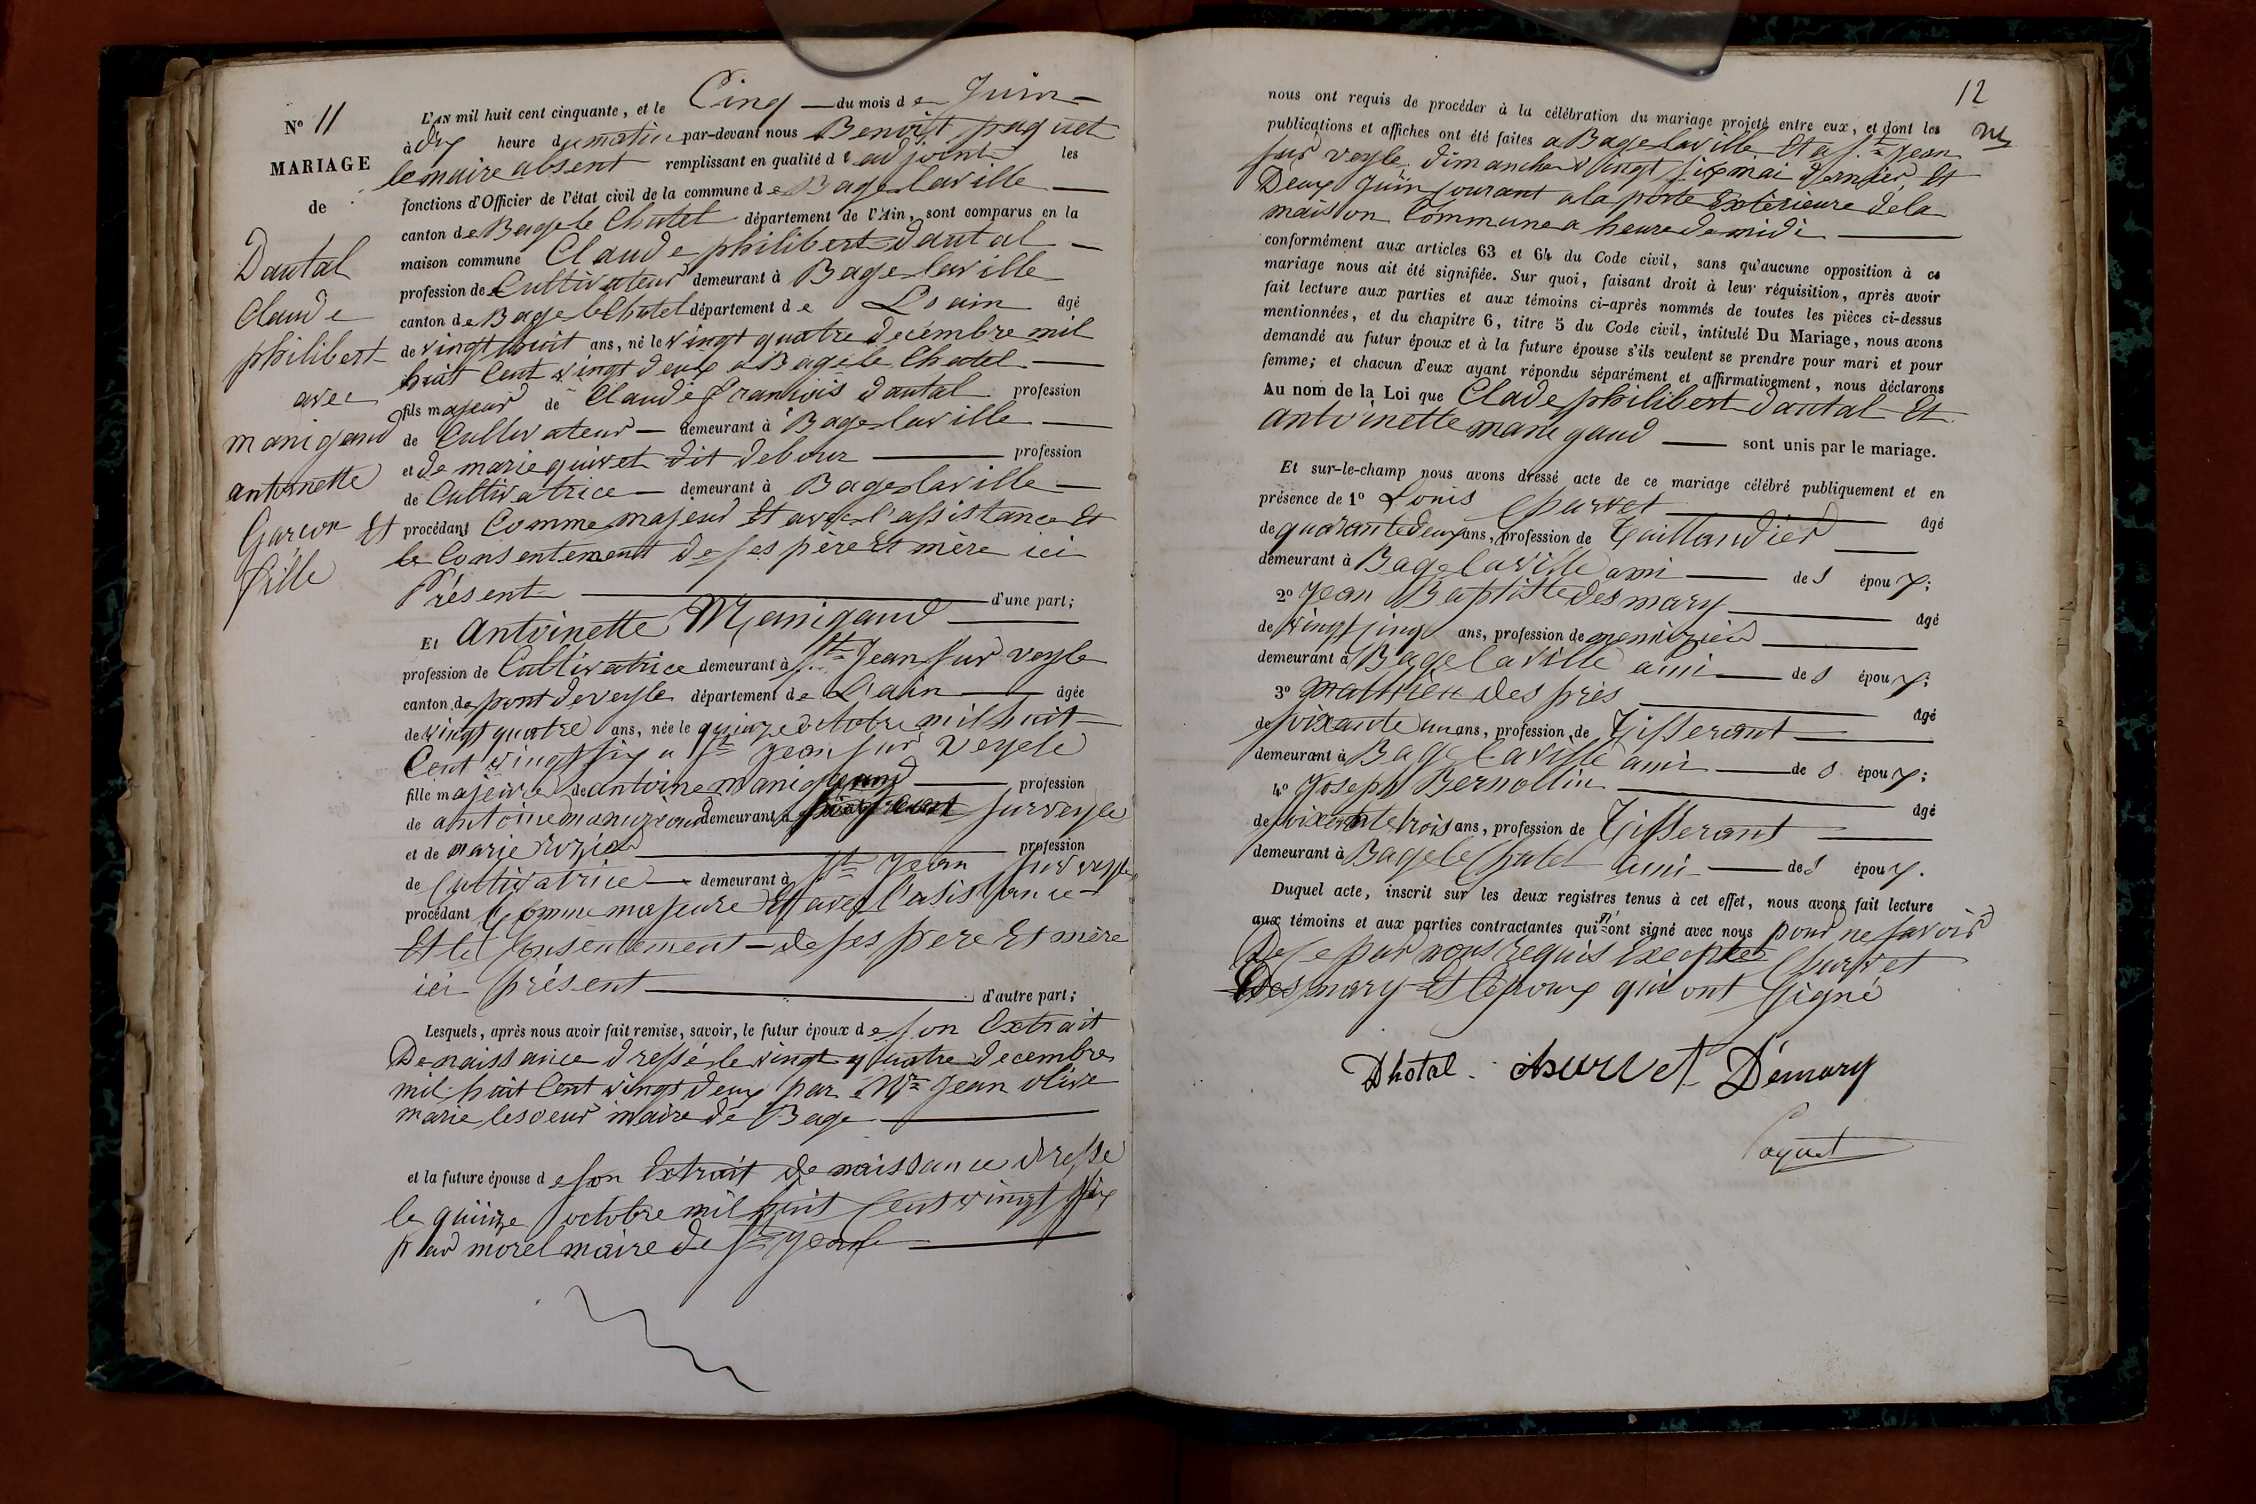 N° 11
MARIAGE
de
Dautal
Claude
philibert
avec
manigaud
antoinette
Garçon Et
fille
L'AN mil huit cent cinquante, et le Cinq du mois de Juin
à dix heure du matin par-devant nous Benoist paquet
le maire absent remplissant en qualité d'adjoint les
fonctions d'Officier de l'état civil de la commune de Bagelaville
canton de Bage le Chatel département de l'Ain, sont comparus en la
maison commune Claude philibert dautal
profession de Cultivateur demeurant à Bagelaville
canton de Bage le Chatel département de L'ain âgé
de vingt huit ans, né le vingt quatre decembre mil
huit Cent vingt deux a Bage le Chatel
fils majeur de Claude francois dautal profession
de Cultivateur demeurant à Bagelaville
et de marie quivet dit debour profession
de Cultivatrice demeurant à Bagelaville
procédant Comme majeur Et avec l'assistance Et
le Consentement de ses père Et mère ici
Présent d'une part;
Et Antoinette Manigaud
profession de Cultivatrice demeurant à St Jean sur veyle
canton de pont de veyle département de L'ain âgée
de vingt quatre ans, née le quinze octobre mil huit
Cent vingt six a St Jean sur veyle
fille majeure de antoine manigaud profession
de antoine demeurant à sur veyle
et de marie profession
de Cultivatrice demeurant à St Jean sur veyle
procédant Comme majeure Et avec l'asistance
Et le Consentement de ses père Et mère
ici présent d'autre part;
Lesquels, après nous avoir fait remise, savoir, le futur époux de son Extrait
De naissance dressé le vingt quatre decembre
mil huit Cent vingt deux par Mr Jean olive
marie lesoeur maire de Bage
et la future épouse de son Extrait de naissance dresse
le quinze octobre mil huit Cent vingt six
par morel maire de St Jean
12
nous ont requis de procéder à la célébration du mariage projeté entre eux, et dont les
publications et affiches ont été faites a Bagelaville Et a St Jean
sur veyle dimanche vingt six mai dernier Et
Deux Juin Courant a la porte Extérieure de la
maison Commune a heure de midi
conformément aux articles 63 et 64 du Code civil, sans qu'aucune opposition à ce
mariage nous ait été signifiée. Sur quoi, faisant droit à leur réquisition, après avoir
fait lecture aux parties et aux témoins ci-après nommés de toutes les pièces ci-dessus
mentionnées, et du chapitre 6, titre 5 du Code civil, intitulé Du Mariage, nous avons
demandé au futur époux et à la future épouse s'ils veulent se prendre pour mari et pour
femme; et chacun d'eux ayant répondu séparément et affirmativement, nous déclarons
Au nom de la Loi que Clade philibert dautal Et
antoinette manigaud sont unis par le mariage.
Et sur-le-champ nous avons dressé acte de ce mariage célébré publiquement et en
présence de 1° Louis Churvet âgé
de quarante deux ans, profession de Taillandier
demeurant à Bagelaville ami des époux;
2° Jean Baptiste desmary âgé
de vingt cinq ans, profession de menuzier
demeurant à Bagelaville ami des époux;
3° mathieu des près âgé
de soixante un ans, profession de Tisserant
demeurant à Bagelaville ami des époux;
4° Joseph Bernollin âgé
de soixante trois ans, profession de Tisserant
demeurant à Bage le Chatel ami des époux.
Duquel acte, inscrit sur les deux registres tenus à cet effet, nous avons fait lecture
aux témoins et aux parties contractantes qui n'ont signé avec nous pour ne savoir
De ce par nous requis Exeptes Churvet
Desmary Et l'époux qui ont signé
Dhotal Churvet Démary
Paquet